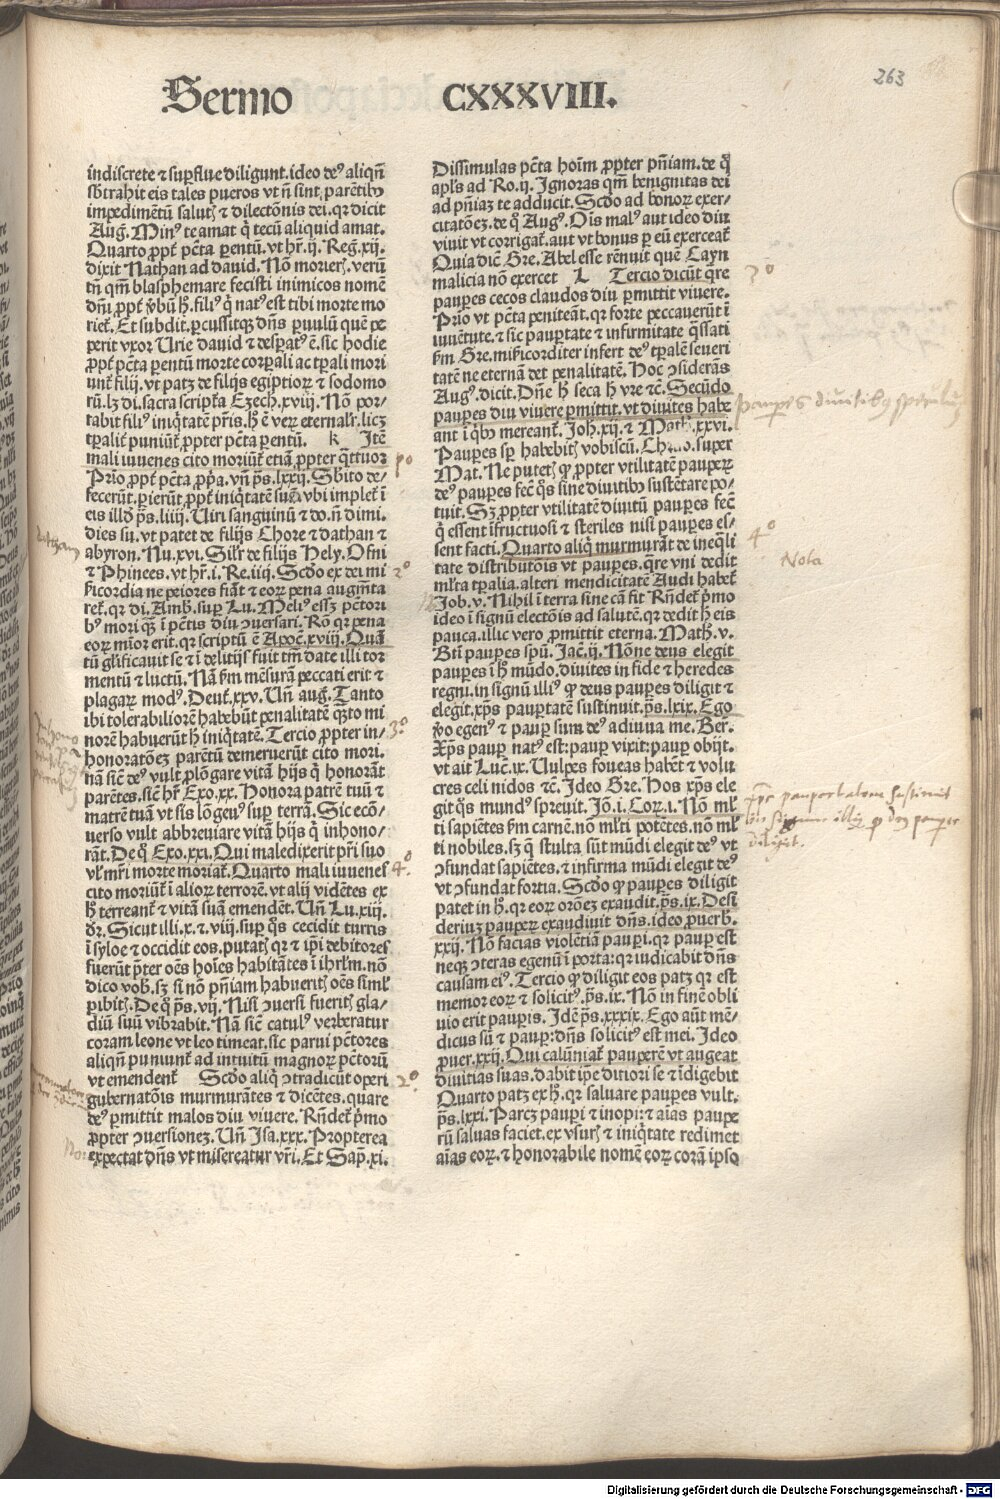 263
Sermo CXXXVIII.
indiscrete ⁊ suꝑflue diligunt. ideo deꝰ aliqñ
sb̃trahit eis tales pueros vt nõ sint parẽtibꝰ
impedimẽtũ salutꝭ ⁊ dilectõnis dei. qꝛ dicit
Aug̃. Minꝰ te amat qui tecũ aliquid amat.
Quarto ꝓpt̃ pctã parentũ. vt hr̃. ij. Reg̃. xij.
dixit Nathan ad dauid. Nõ morierꝭ. verũ
tñ qm̃ blasphemare fecisti inimicos nomẽ
dñi ꝓpt̃ v̾bũ h̾. filiꝰ q̃ natꝰ est tibi morte mo
riet̃. Et subdit. ꝑcussitqꝫ dñs ꝑuulũ quẽ pe
perit vxor Urie dauid ⁊ desꝑatꝰ ẽ. sic hodie
ꝓpt̃ pctã parentũ morte corꝑali ac tꝑali mori
unt̃ filij. vt patꝫ de filijs egiptioꝝ ⁊ sodomo
rũ. lꝫ di. sacra script̃a Ezech. xviij. Nõ por⸗
tabit filiꝰ iniq̃tatẽ pr̃is. h̾ ẽ veꝝ eternalr̃. licꝫ
tꝑalit̃ puniũt̃ ꝓpter pctã parentũ. K Itẽ
mali iuuenes cito moriũt̃ etiã ꝓpter q̃ttuor
Prio ꝓpt̃ pctã ꝓpr̃a. vñ ps̃. lxxij. Sb̃ito de⸗
fecerũt. ꝑierũt ꝓpt̃ iniq̃tatẽ suã. vbi implet̃ ĩ
eis illđ ps̃. liiij. Uiri sanguinũ ⁊ do. nõ dimi.
dies su. vt patet de filijs Chore ⁊ dathan ⁊
abyron. Nu. xvi. Silr̃ de filijs Hely. Ofni
⁊ Phinees. vt hr̃. i. Re. iiij. Scđo ex dei mi
sericordia ne peiores fiãt ⁊ eoꝝ pena augm̃ta
ret̃. qꝛ di. Amb̃. suꝑ Lu. Meliꝰ esset pctõri
bꝰ mori qꝫ ĩ pctĩs diu ꝯuersari. Rõ qꝛ pena
eoꝝ mĩor erit. qꝛ scriptũ ẽ Apoc̃. xviij. Quã
tũ gl̃ificauit se ⁊ ĩ delitijs fuit tm̃ date illi tor
mentũ ⁊ luctũ. Nã fm̃ mẽsurã peccati erit ⁊
plagaꝝ modꝰ. Deut̃. xxv. Uñ aug̃. Tanto
ibi tolerabiliorẽ habebũt penalitatẽ qꝫto mi
norẽ habuerũt h̾ iniq̃tatẽ. Tercio ꝓpter in⸗
honoratõeꝫ parẽtũ demeruerũt cito mori.
nã sic̃ deꝰ vult ꝓlõgare vitã hijs q̃ honorãt
parẽtes. sic̃ hr̃ Exo. xx. Honora patrẽ tuũ ⁊
matrẽ tuã vt sis lõgeuꝰ suꝑ terrã. Sic ecõ⸗
uerso vult abbreuiare vitã hijs q̃ inhono⸗
rãt. De q̃ Exo. xxi. Qui maledixerit pr̃i suo
vl̃ mr̃i morte moriat̃. Quarto mali iuuenes
cito moriũt̃ ĩ alioꝝ terrorẽ. vt alij vidẽtes ex
h̾ terreant̃ ⁊ vitã suã emendẽt. Uñ Lu. xiij.
dr̃. Sicut illi. x. ⁊. viij. suꝑ q̃s cecidit turris
ĩ syloe ⁊ occidit eos. putatꝭ qꝛ ⁊ ip̃i debitores
fuerũt p̃ter oẽs hoĩes habitãtes ĩ ihrlm̃. nõ
dico vob̃. sꝫ si nõ pñiam habueritꝭ oẽs siml̃
ꝑibitꝭ. De q̃ ps̃. vij. Nisi ꝯuersi fueritꝭ gla⸗
diũ suũ vibrabit. Nã sic̃ catulꝰ verberatur
coram leone vt leo timeat. sic parui pctõres
aliqñ puniunt̃ ad intuitũ magnoꝝ pctõrũ
vt emendent̃ Scđo aliq̃ ꝯtradicũt operi
gubernatõis murmurãtes ⁊ dicẽtes. quare
deꝰ ꝑmittit malos diu viuere. Rñdet̃ p̃mo
ꝓpter ꝯuersioneꝫ. Uñ Isa. xxx. Propterea
expectat dñs vt misereatur vr̃i. Et Sap̃. xi.
Dissimulas pctã hoĩm ꝓpter pñiam. de q̃
apl̃s ad Ro. ij. Ignoras qm̃ benignitas dei
ad pñiaꝫ te adducit. Scđo ad bonoꝝ exer⸗
citatõeꝫ. de q̃ Augꝰ. Oĩs malꝰ aut ideo diu
viuit vt corrigat̃. aut vt bonus ꝑ eũ exerceat̃
Quia dic̃ Gre. Abel esse rẽnuit quẽ Cayn
malicia nõ exercet L Tercio dicũt q̃re
pauꝑes cecos claudos diu ꝑmittit viuere.
Prio vt pctã peniteãt. qꝛ forte peccauerũt ĩ
iuuẽtute. ⁊ sic pauꝑtate ⁊ infirmitate q̃ssati
fm̃ Gre. mĩsericorditer infert deꝰ tꝑalẽ seueri
tatẽ ne eternã det penalitatẽ. Hoc ꝯsiderãs
Augꝰ. dicit. Dñe h̾ seca h̾ vre ⁊c. Secũdo
pauꝑes diu viuere ꝑmittit. vt diuites habe
ant ĩ q̃bꝰ mereant̃. Joh̃. xij. ⁊ Math̃. xxvi.
Pauꝑes sꝑ habebitꝭ vobiscũ. super
Mat. Ne putetꝭ ꝙ ꝓpter vtilitatẽ pauꝑꝝ
deꝰ pauꝑes fec̃ q̃s sine diuitibꝰ sustẽtare po⸗
tuit. Sꝫ ꝓpter vtilitatẽ diuitũ pauꝑes fec̃
q̃ essent ĩfructuosi ⁊ steriles nisi pauꝑes es⸗
sent facti. Quarto aliq̃ murmurãt de ineq̃li
tate distributõis vt pauꝑes. q̃re vni dedit
ml̃ta tꝑalia. alteri mendicitatẽ Audi habet̃
Job. v. Nihil ĩ terra sine cã fit Rñdet̃ p̃mo
ideo ĩ signũ electõis ad salutẽ. qꝛ dedit h̾ eis
pauca. illic vero ꝓmittit eterna. Math̃. v.
Bt̃i pauꝑes spũ. Jac̃. ij. Nõne deus elegit
pauꝑes ĩ h̾ mũdo. diuites in fide ⁊ heredes
regni. in signũ illiꝰ ꝙ deus pauꝑes diligit ⁊
elegit. xp̃s pauꝑtatẽ sustinuit. ps̃. lxix. Ego
v̾o egenꝰ ⁊ pauꝑ sum deꝰ adiuua me. Ber.
Xp̃s pauꝑ natꝰ est: pauꝑ vixit: pauꝑ obijt.
vt ait Luc̃. ix. Uulpes foueas habẽt ⁊ volu
cres celi nidos ⁊c. Ideo Gre. Hos xp̃s ele
git q̃s mundꝰ spreuit. Jõ. i. Coꝝ. i. Nõ ml̃
ti sapiẽtes fm̃ carnẽ. nõ ml̃ti potẽtes. nõ ml̃
ti nobiles. sꝫ q̃ stulta sũt mũdi elegit deꝰ vt
ꝯfundat sapiẽtes. ⁊ infirma mũdi elegit deꝰ
vt ꝯfundat fortia. Scđo ꝙ pauꝑes diligit
patet in h̾. qꝛ eoꝝ orõeꝫ exaudit. ps̃. ix. Desi
deriuꝫ pauꝑꝝ exaudiuit dñs. ideo ꝓuerb̃.
xxij. Nõ facias violẽtiã pauꝑi. qꝛ pauꝑ est
neqꝫ ꝯteras egenũ ĩ porta: qꝛ iudicabit dñs
causam eiꝰ. Tercio ꝙ diligit eos patꝫ qꝛ est
memor eoꝝ ⁊ solicitꝰ. ps̃. ix. Nõ in finẽ obli
uio erit pauꝑis. Idẽ ps̃. xxxix. Ego aũt mẽ⸗
dicus sũ ⁊ pauꝑ: dñs solicitꝰ est mei. Ideo
ꝓuer. xxij. Qui calũniat̃ pauꝑẽ vt augeat
diuitias suas. dabit ip̃e ditiori se ⁊ ĩdigebit
Quarto patꝫ ex h̾. qꝛ saluare pauꝑes vult.
ps̃. lxxi. Parcet pauꝑi ⁊ inopi: ⁊ aĩas pauꝑe
rũ saluas faciet. ex vsurꝭ ⁊ iniq̃tate redimet
aĩas eoꝝ. ⁊ honorabile nomẽ eoꝝ corã ipso
pº
2º
3º
4º
2º
3º
pauperes diuitibꝰ
4º
Nota
xp̃s paupertatem sustinuit
diligit.
Digitalisierung gefördert durch die Deutsche Forschungsgemeinschaft - DFG